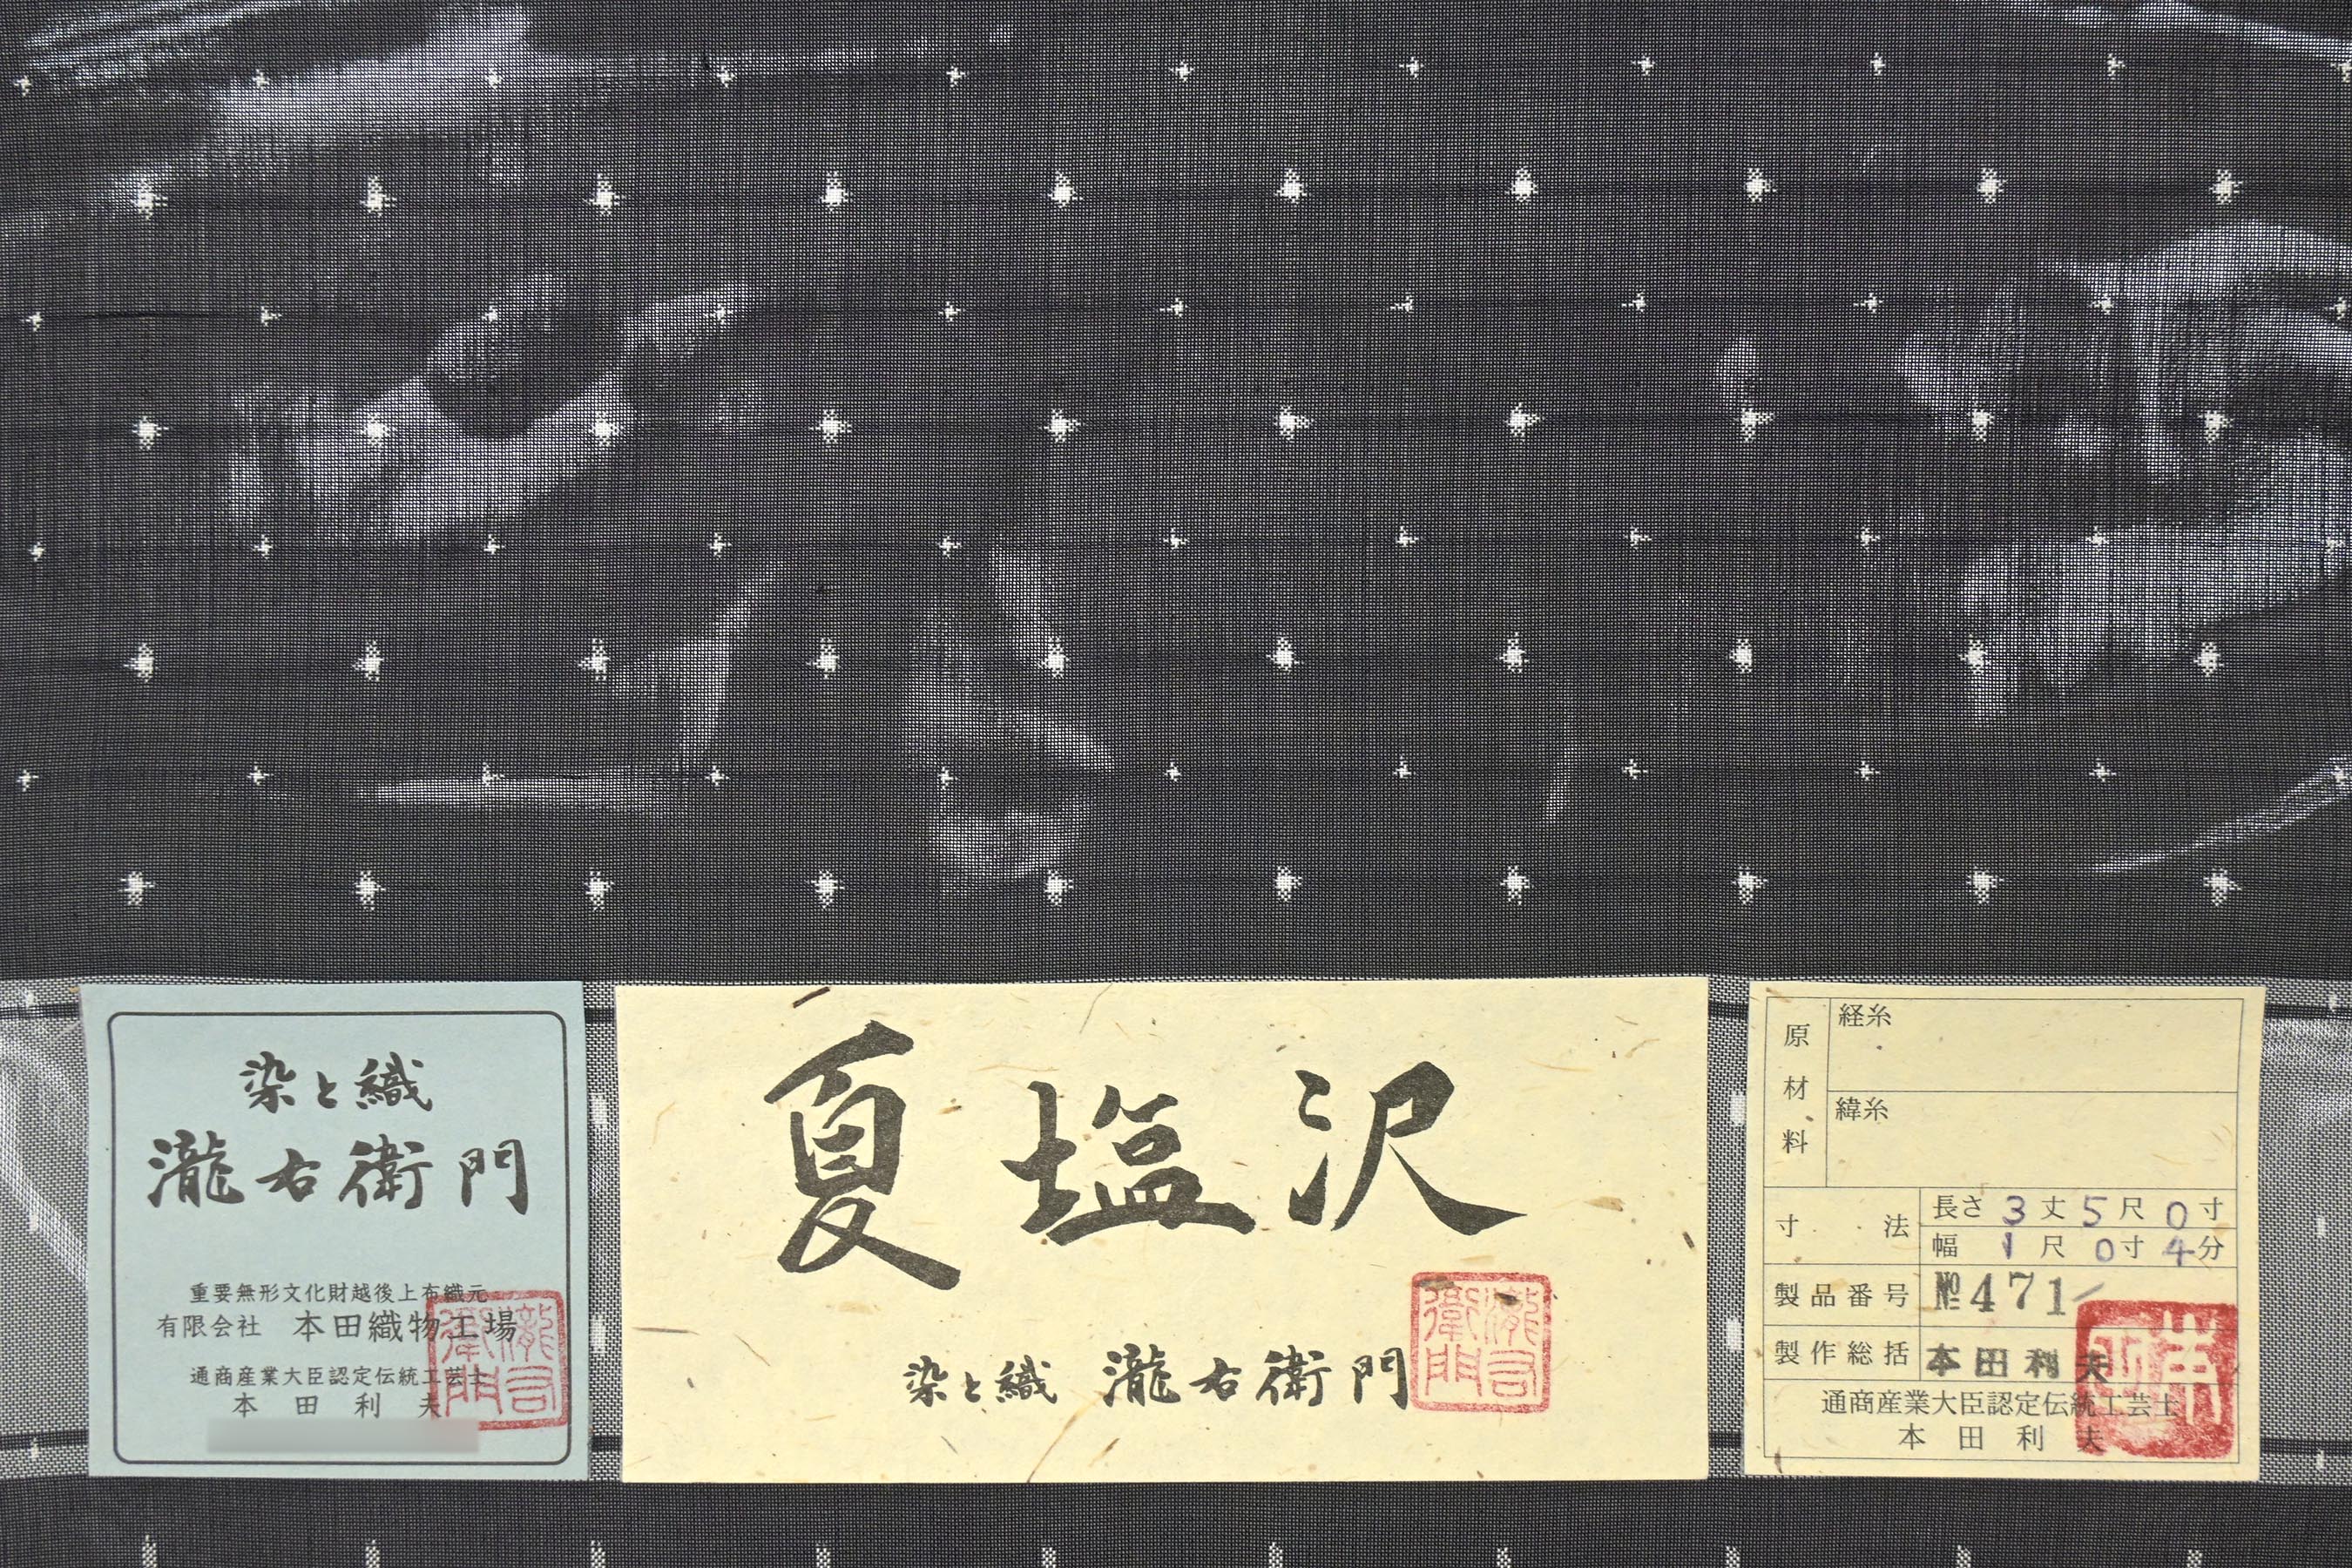 染と織
瀧右衛門
重要無形文化財越後上布織元
有限会社 本田織物工場
通商産業大臣認定伝統工芸士
本田利夫
夏塩沢
染と織 瀧右衛門
原材料
経糸
緯糸
寸法
長さ 3丈5尺0寸
幅 1尺0寸4分
製品番号 №471
製作総括 本田利夫
通商産業大臣認定伝統工芸士
本田利夫